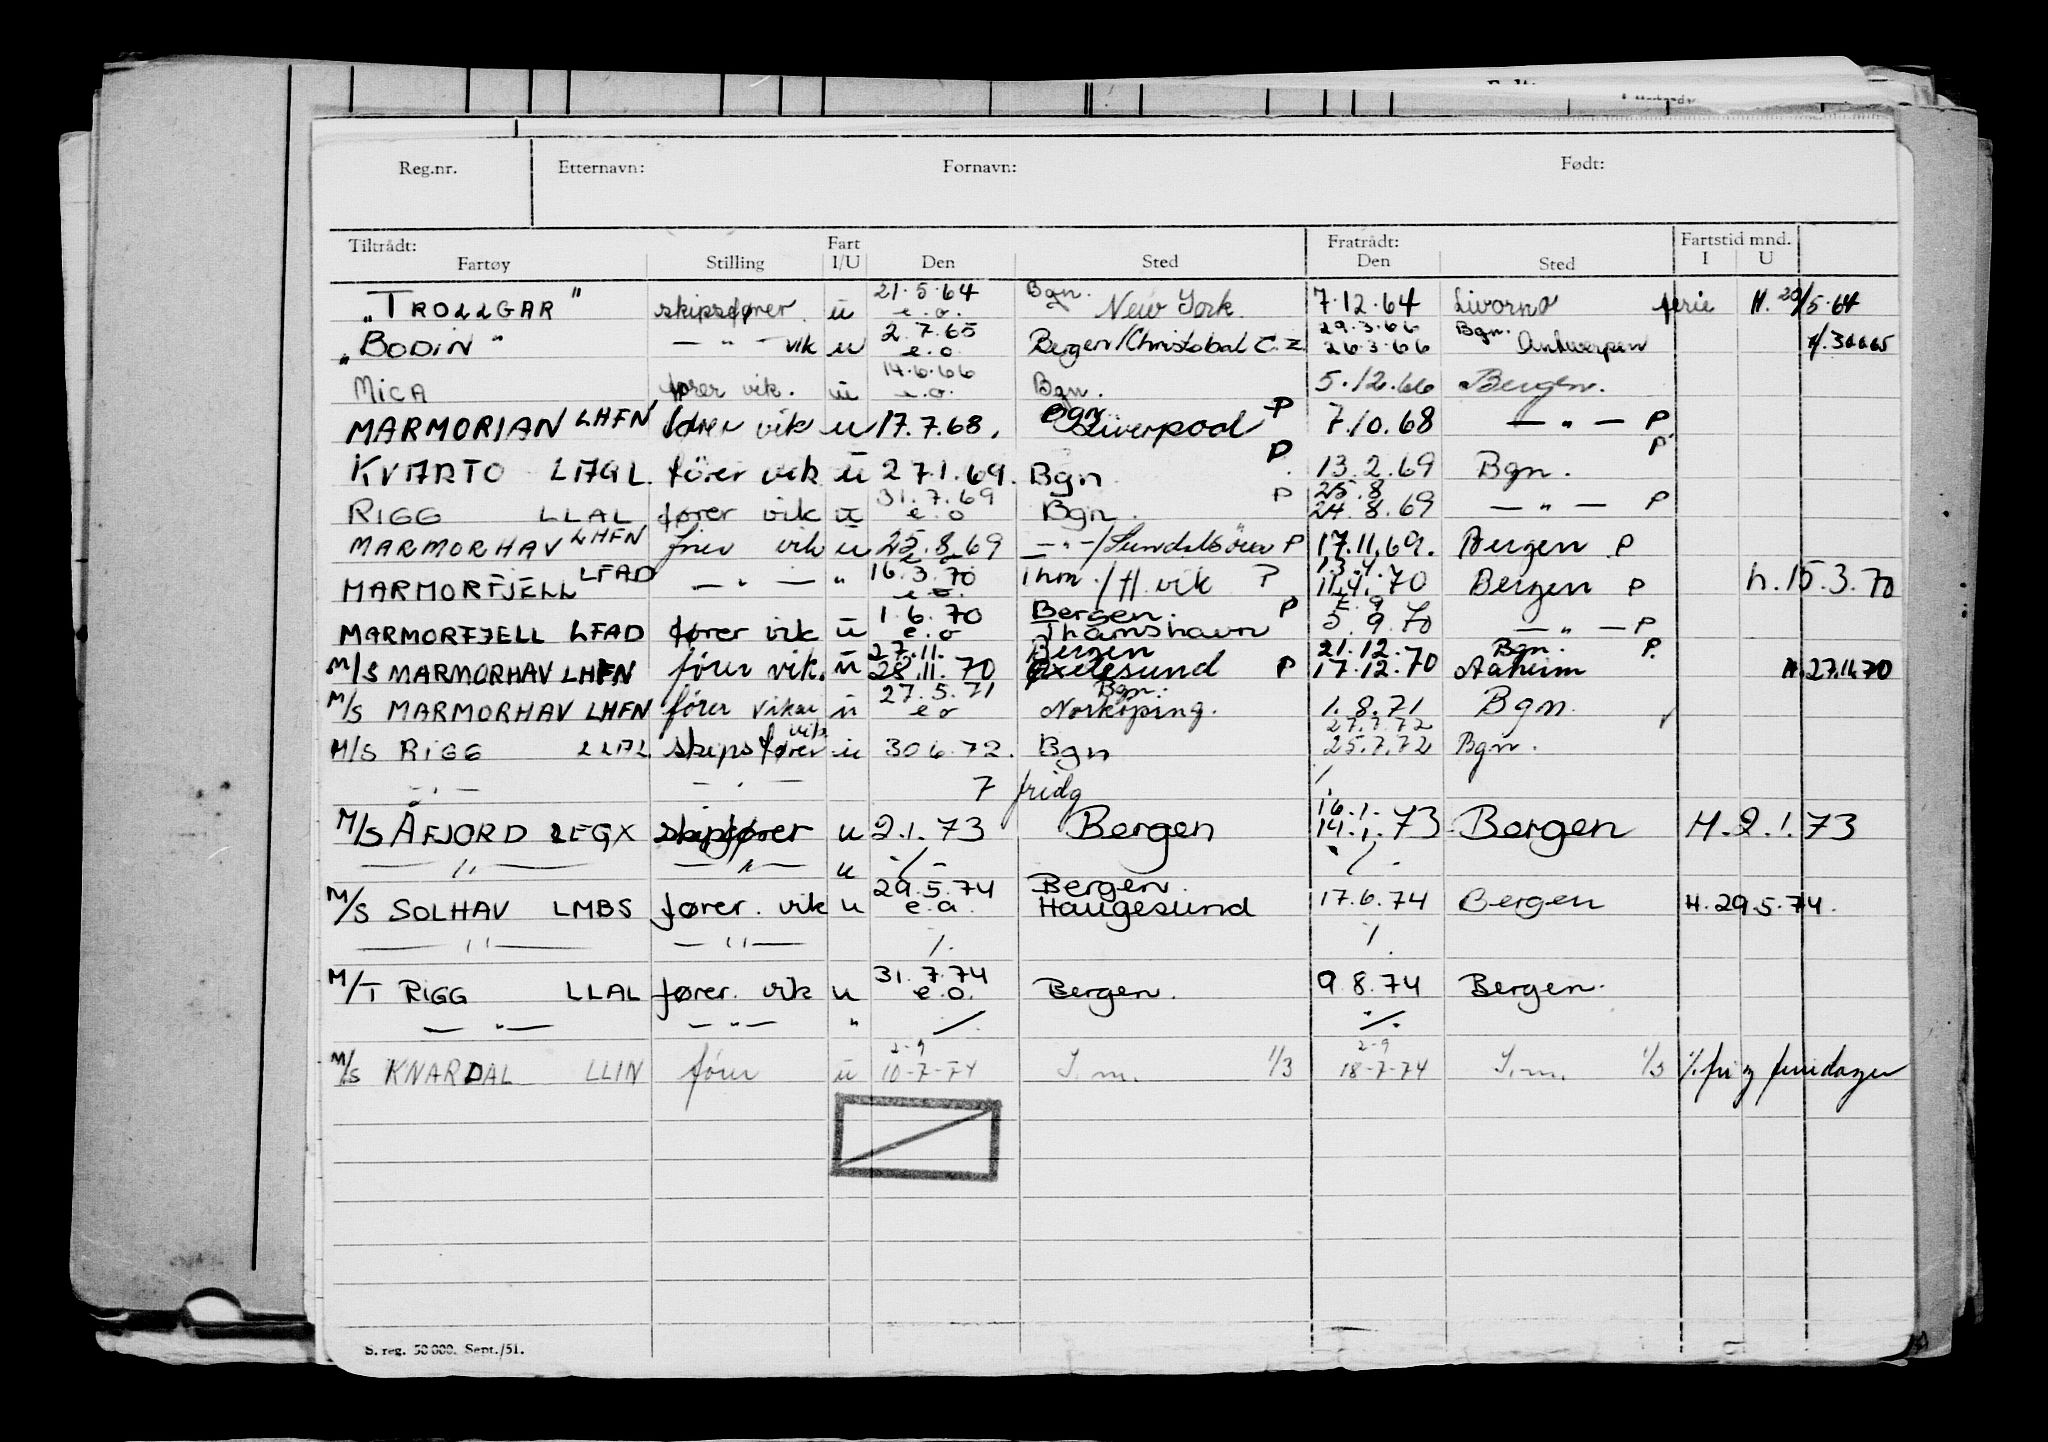 Reg.nr. Etternavn: Fornavn: Født:
Tiltrådt: Fart Fratrådt: Fartstid mnd.
Fartøy Stilling I/U Den Sted Den Sted I U
21.5.64 Bgn.
„TROLLGAR" skipsfører u e.o. New York 7.12.64 Livorno ferie H. 20/5.64
2.7.65 29.3.66 Bgn.
„BODIN" — " — vik u e.o. Bergen/Christobal C.Z 26.3.66 Antwerpen
14.6.66
MICA fører vik. u e.o. Bgn. 5.12.66 Bergen.
Bgn P
MARMORIAN LHFN fører vik u 17.7.68. Liverpool 7.10.68 — " — P
P P
KVARTO LAGL fører vik u 27.1.69. Bgn 13.2.69 Bgn.
31.7.69 P 25.8
RIGG LLAL fører vik u e.o Bgn. 24.8.69 — " — P
MARMORHAV LHFN fører vik u 25.8.69 — " —/Sundalsören P 17.11.69. Bergen P
16.3.70 13.4.
MARMORFJELL LFAD — " — " e.o. Thm./H.vik P 11.4.70 Bergen P h.15.3.70
1.6.70 Bergen. P
MARMORFJELL LFAD fører vik u e.o Thamshavn 5.9.70 — " — P
27.11. Bergen 21.12.70 Bgn. P.
M/S MARMORHAV LHFN fører vik. u 28.11.70 Oxelesund P 17.12.70 Aaheim H.27.11.70
27.5.71 Bgn.
M/S MARMORHAV LHFN fører vikar u e.o Norkøping. 1.8.71 Bgn.
vik 27.7.72
M/S RIGG LLAL skipsfører u 30.6.72. Bgn 25.7.72 Bgn.
— " — — " — 7 fridg ./.
16.1.
M/S ÅFJORD LFGX skipsfører u 2.1.73 Bergen 14.1.73 Bergen H.2.1.73
— " — — " — u ./. ./.
29.5.74 Bergen.
M/S SOLHAV LMBS fører. vik u e.o. Haugesund 17.6.74 Bergen H.29.5.74.
— " — — " — ./. ./.
31.7.74
M/T RIGG LLAL fører. vik u e.o. Bergen. 9.8.74 Bergen.
— " — — " — " ./. ./.
2-9 2-9
M/S KNARDAL LLIN fører u 10-7-74 S.m. 1/3 18-7-74 S.m. 1/3 ./. fri og feriedager
S. reg. 50 000. Sept./51.